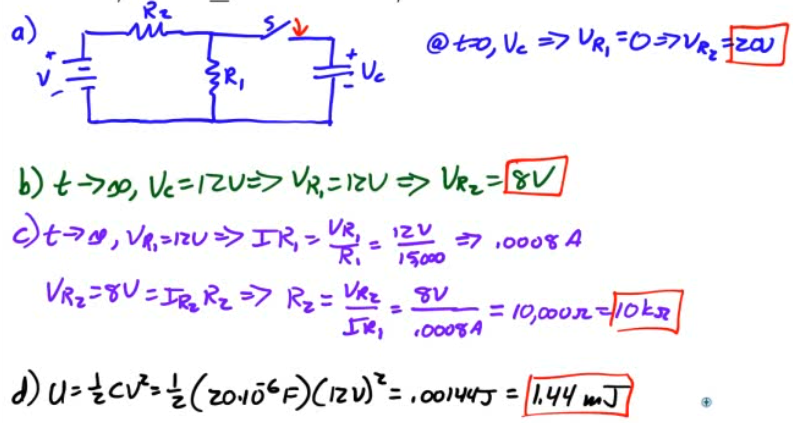 a)
R₂
S
+
V
-
R₁
+
Vc
-
@ t=0, Vc => V_R₁ = 0 => V_R₂ = 20V
b) t→∞, Vc = 12V => V_R₁ = 12V => V_R₂ = 8V
c) t→∞, V_R₁ = 12V => I_R₁ = V_R₁/R₁ = 12V/15000 => .0008A
V_R₂ = 8V = I_R₂ R₂ => R₂ = V_R₂/I_R₁ = 8V/.0008A = 10,000Ω = 10kΩ
d) U = ½CV² = ½(20·10⁻⁶F)(12V)² = .00144J = 1.44 mJ